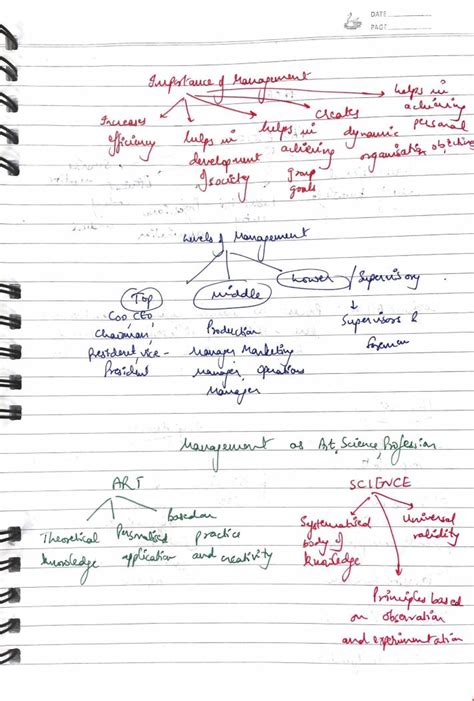 DATE
PAGE
Importance of Management
Increases
efficiency
helps in
development
of society
helps in
achieving
group
goals
creates
dynamic
organisation
helps in
achieving
personal
objective
Levels of Management
Top
Coo, CEO,
Chairman,
President vice-
President
Middle
Production
Manager Marketing
manager, operations
Manager
Lower / Supervisory
Supervisors &
foreman
Management as Art, Science, Profession
ART
Theoretical
knowledge
Personalised
application
based on
practice
and creativity
SCIENCE
Systematised
body of
knowledge
Universal
validity
Principles based
on observation
and experimentation